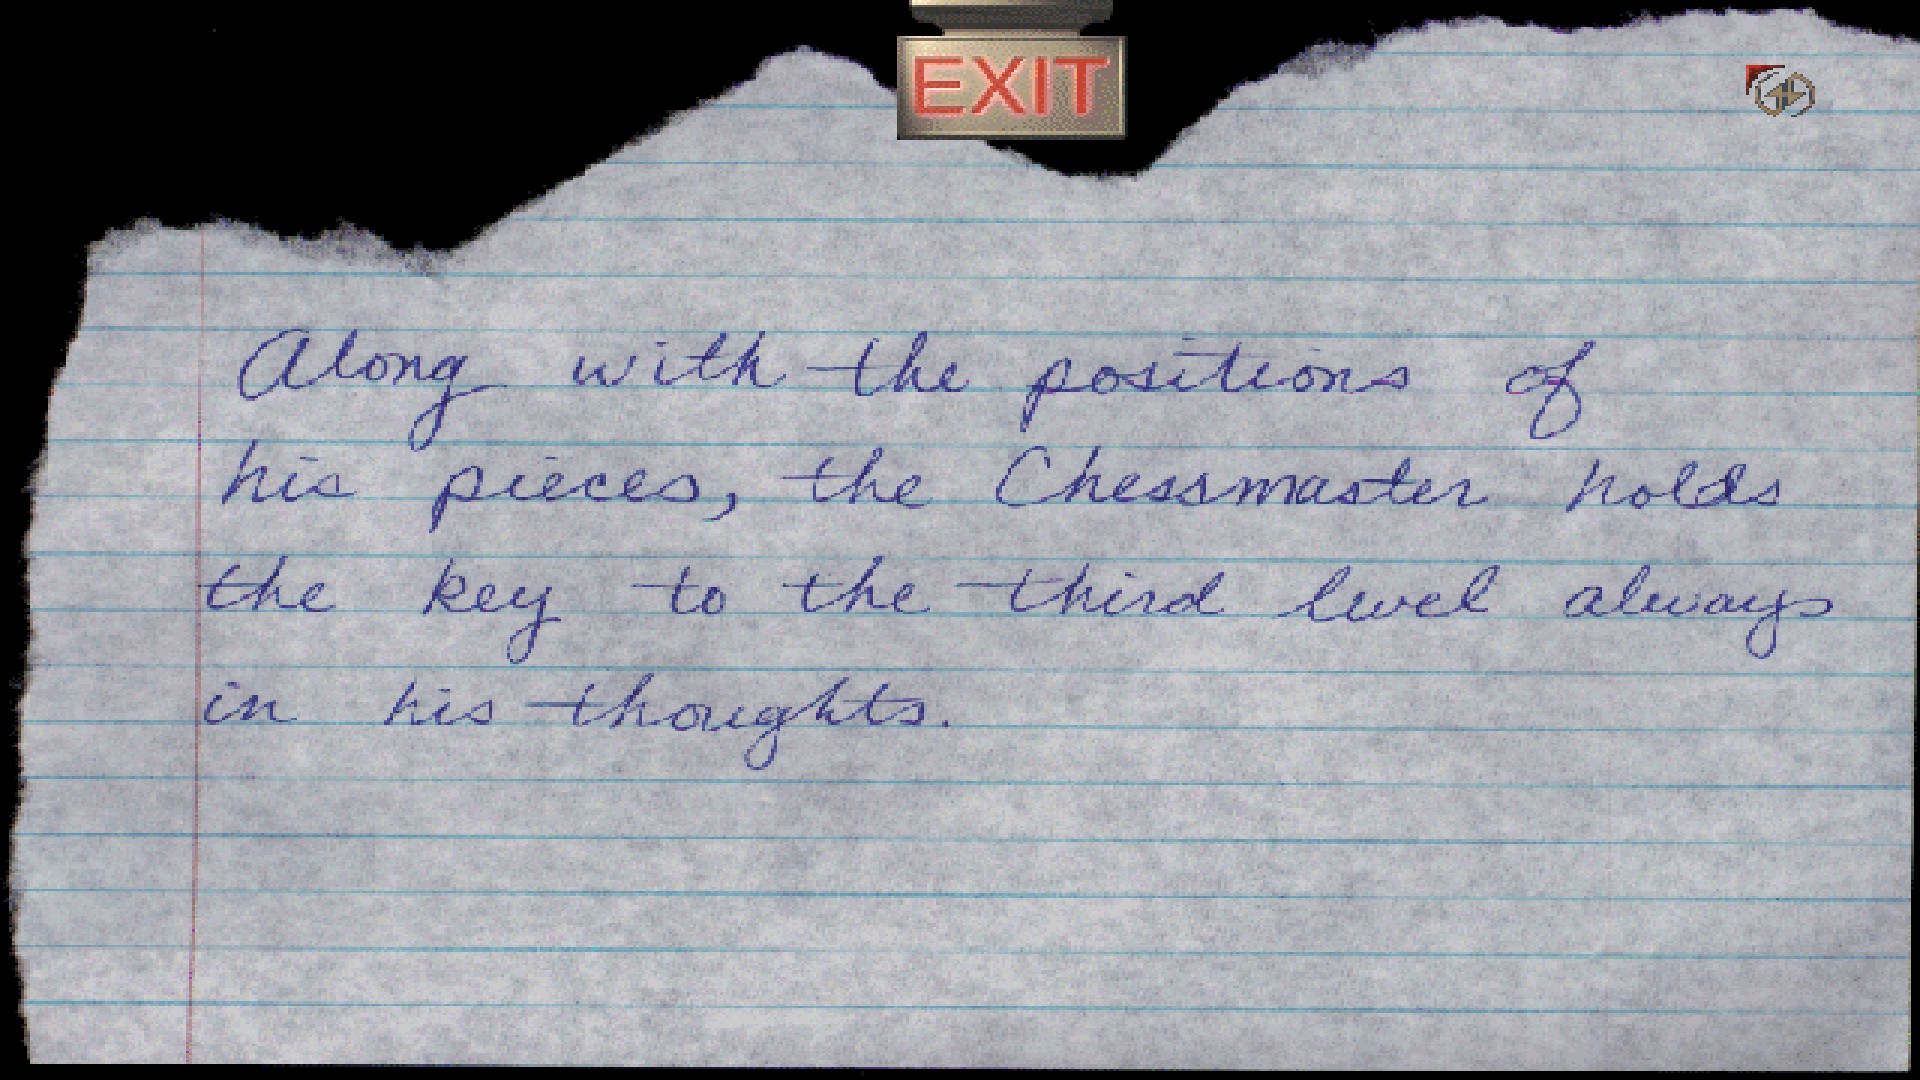 EXIT
Along with the positions of
his pieces, the Chessmaster holds
the key to the third level always
in his thoughts.